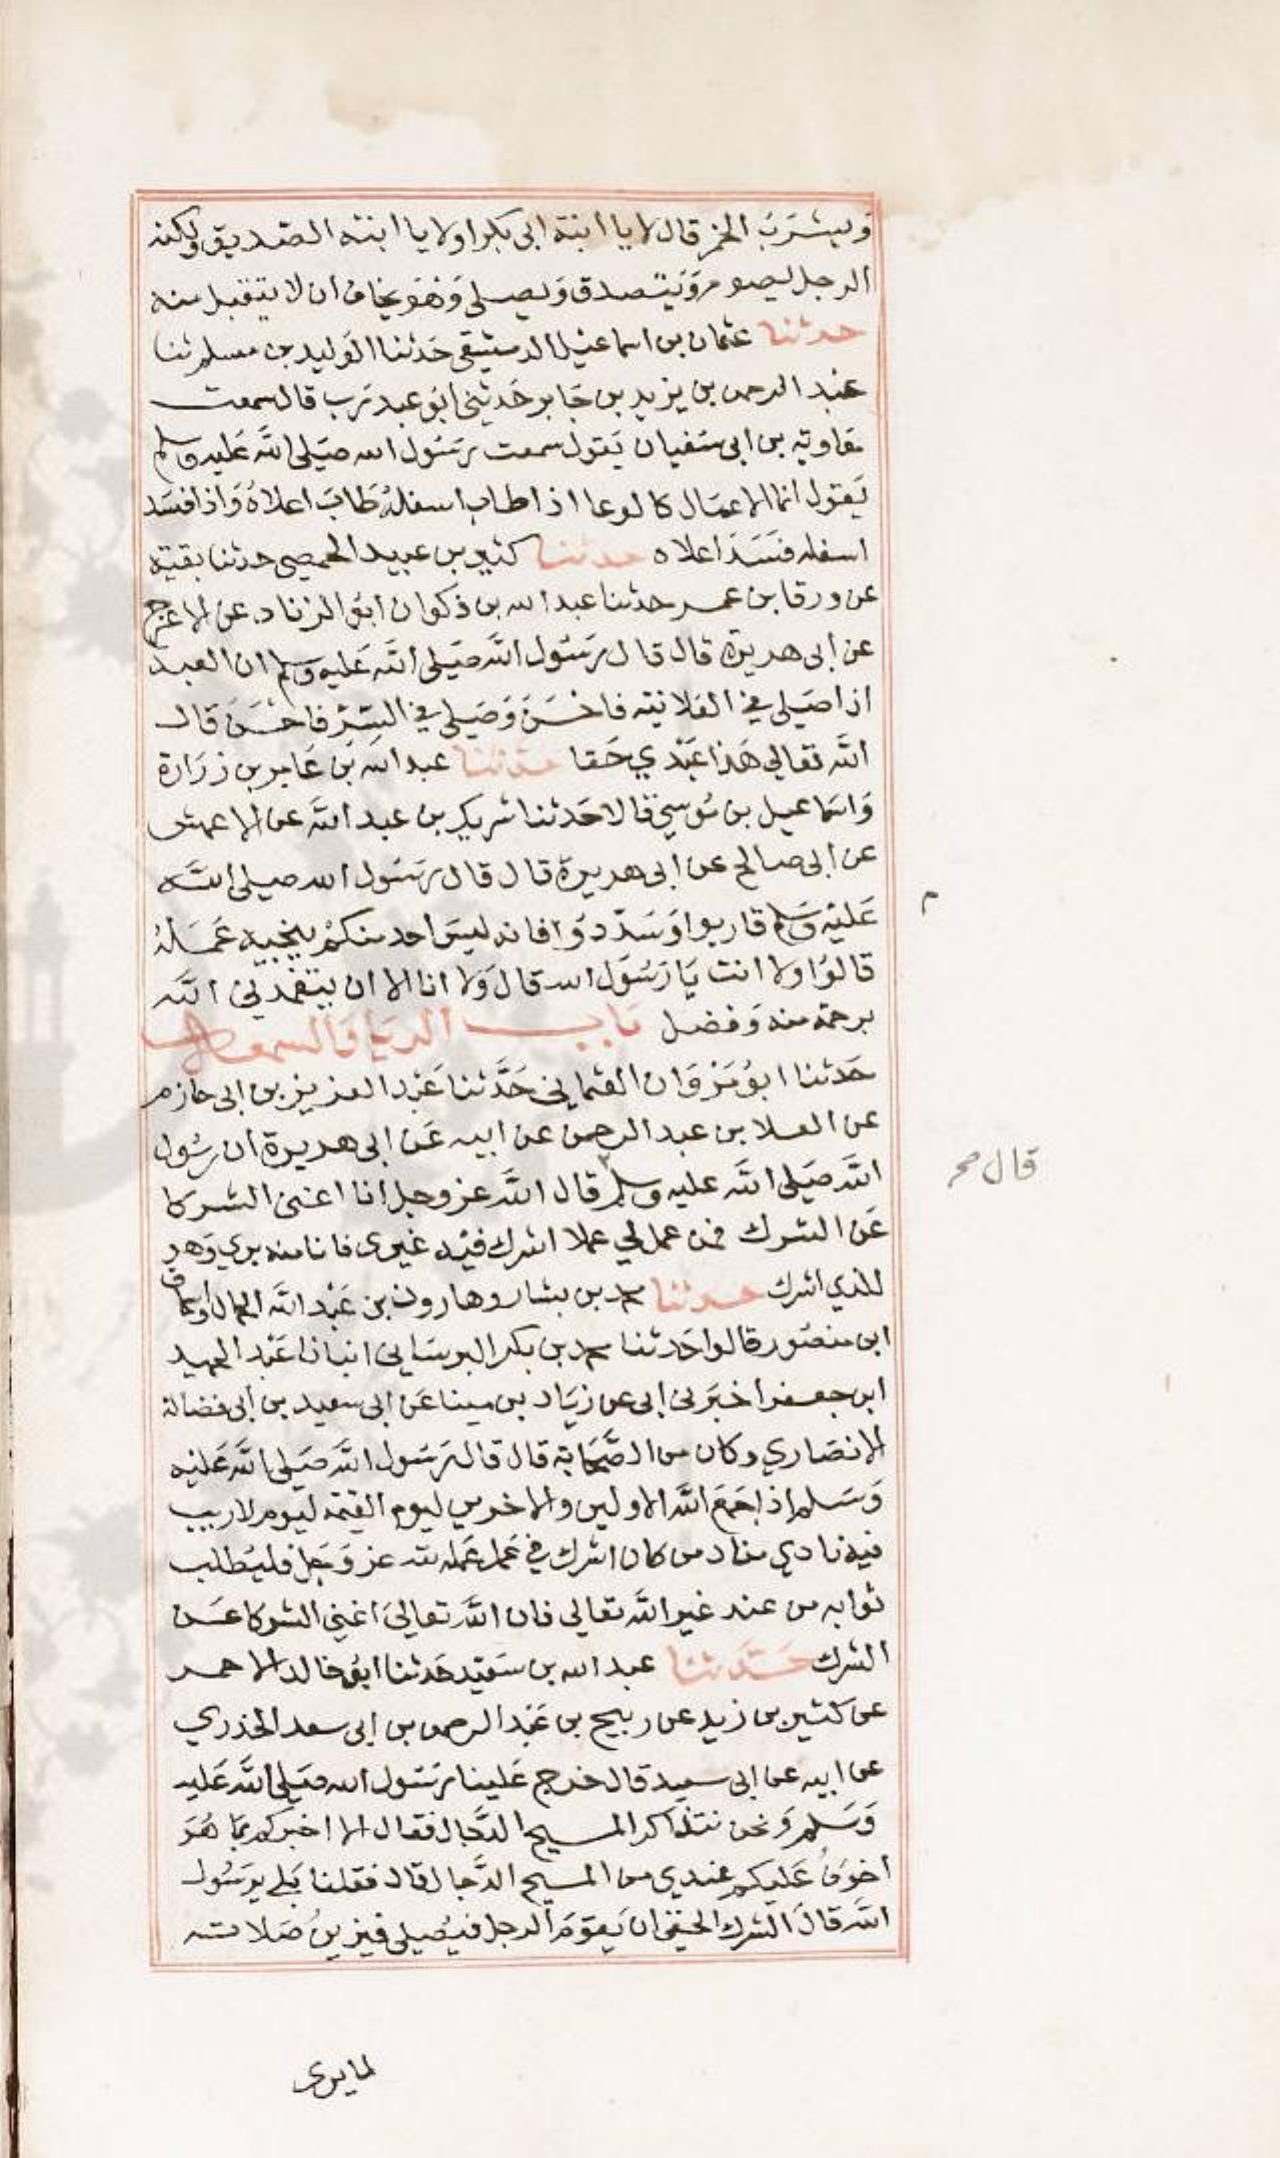 ويشرب الخمر قال لا يا ابنة ابي بكر اولا يا ابنة الصديق ولكنه
الرجل يصوم ويتصدق ويصلي وهو يخاف ان لا يتقبل منه
حدثنا عثمان بن اسماعيل الدمشقي حدثنا الوليد بن مسلم ثنا
عبد الرحمن بن يزيد بن جابر حدثني ابو عبد رب قال سمعت
معاوية بن ابي سفيان يقول سمعت رسول الله صلى الله عليه وسلم
يقول انما الاعمال كالوعا اذا طاب اسفله طاب اعلاه واذا فسد
اسفله فسد اعلاه حدثنا كثير بن عبيد الحمصي حدثنا بقية
عن ورقا بن عمر حدثنا عبد الله بن ذكوان ابو الزناد عن الاعرج
عن ابي هريرة قال قال رسول الله صلى الله عليه وسلم ان العبد
اذا صلى في العلانية فاحسن وصلى في السر فاحسن قال
الله تعالى هذا عبدي حقا حدثنا عبد الله بن عامر بن زرارة
واسماعيل بن موسى قالا حدثنا شريك بن عبد الله عن الاعمش
عن ابي صالح عن ابي هريرة قال قال رسول الله صلى الله
عليه وسلم قاربوا وسددوا فانه ليس احد منكم ينجيه عمله
م
قالوا ولا انت يا رسول الله قال ولا انا الا ان يتغمدني الله
برحمة منه وفضل باب الريا والسمعة
حدثنا ابو مروان العثماني حدثنا عبد العزيز بن ابي حازم
عن العلا بن عبد الرحمن عن ابيه عن ابي هريرة ان رسول
قال صح
الله صلى الله عليه وسلم قال الله عز وجل انا اغنى الشركا
عن الشرك فمن عمل لي عملا اشرك فيه غيرى فانا منه بري وهو
للذي اشرك حدثنا محمد بن بشار وهارون بن عبد الله الحمال واسحاق
ابن منصور قالوا حدثنا محمد بن بكر البرساني انبانا عبد الحميد
ابن جعفر اخبرني ابي عن زياد بن مينا عن ابي سعيد بن ابي فضالة
الانصاري وكان من الصحابة قال قال رسول الله صلى الله عليه
وسلم اذا جمع الله الاولين والاخرين ليوم القيمة ليوم لا ريب
فيه نادي مناد من كان اشرك في عمل عمله لله عز وجل فليطلب
ثوابه من عند غير الله تعالى فان الله تعالى اغنى الشركا عن
الشرك حدثنا عبد الله بن سعيد حدثنا ابو خالد الاحمر
عن كثير بن زيد عن ربيح بن عبد الرحمن بن ابي سعد الخدري
عن ابيه عن ابي سعيد قال خرج علينا رسول الله صلى الله عليه
وسلم ونحن نتذاكر المسيح الدجال فقال الا اخبركم بما هو
اخوف عليكم عندي من المسيح الدجال قال فقلنا بلى يرسول
الله قال الشرك الخفي ان يقوم الرجل فيصلى فيزين صلاته
لما يرى